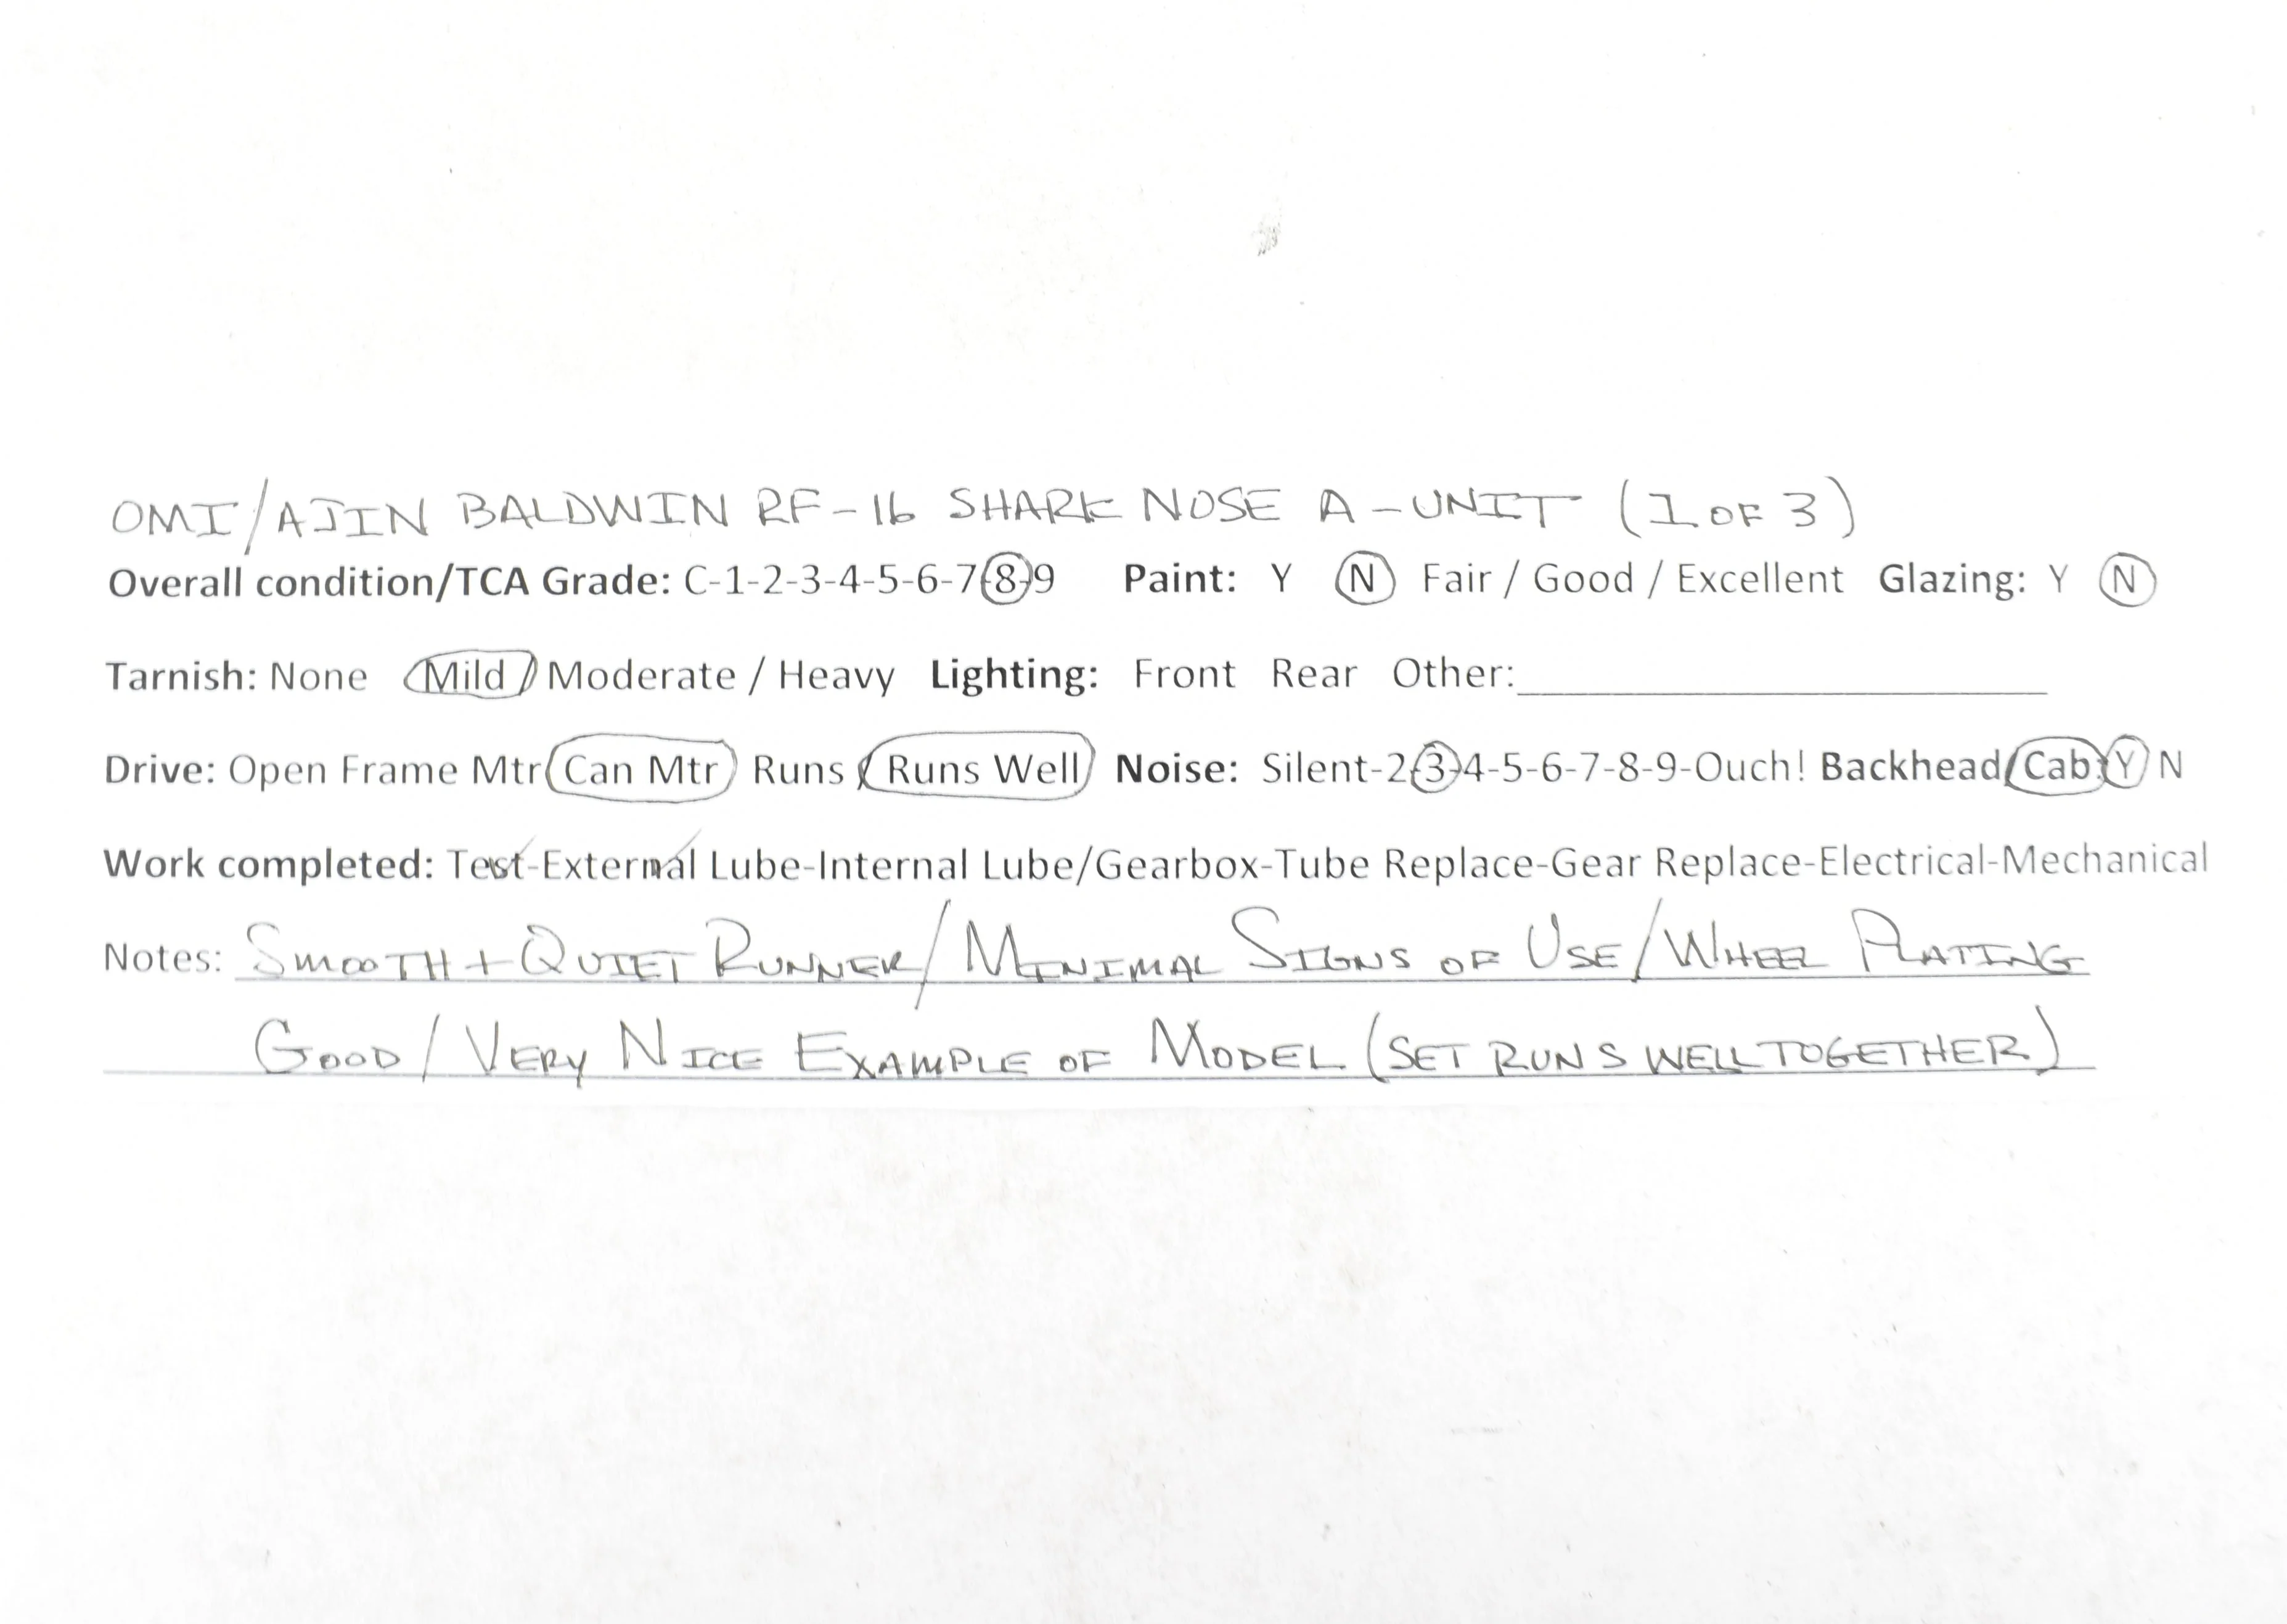 OMI/AJIN BALDWIN RF-16 SHARK NOSE A-UNIT (1 OF 3)
Overall condition/TCA Grade: C-1-2-3-4-5-6-7-8-9 Paint: Y N Fair / Good / Excellent Glazing: Y N
Tarnish: None / Mild / Moderate / Heavy Lighting: Front Rear Other:
Drive: Open Frame Mtr/Can Mtr Runs / Runs Well Noise: Silent-2-3-4-5-6-7-8-9-Ouch! Backhead/Cab: Y N
Work completed: Test-External Lube-Internal Lube/Gearbox-Tube Replace-Gear Replace-Electrical-Mechanical
Notes: SMOOTH + QUIET RUNNER/MINIMAL SIGNS OF USE/WHEEL PLATING
GOOD/VERY NICE EXAMPLE OF MODEL (SET RUNS WELL TOGETHER)